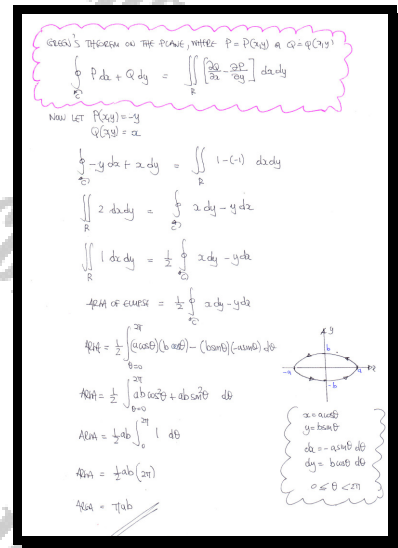 GREEN'S THEOREM ON THE PLANE, WHERE P = P(x,y) & Q = Q(x,y)
∮_C P dx + Q dy = ∬_R [∂Q/∂x - ∂P/∂y] dxdy
NOW LET P(x,y) = -y
Q(x,y) = x
∮_C -y dx + x dy = ∬_R 1-(-1) dxdy
∬_R 2 dxdy = ∮_C x dy - y dx
∬_R 1 dx dy = 1/2 ∮_C x dy - y dx
AREA OF ELLIPSE = 1/2 ∮_C x dy - y dx
AREA = 1/2 ∫_{θ=0}^{2π} (a cosθ)(b cosθ) - (b sinθ)(-a sinθ) dθ
AREA = 1/2 ∫_{θ=0}^{2π} ab cos²θ + ab sin²θ dθ
AREA = 1/2 ab ∫_0^{2π} 1 dθ
AREA = 1/2 ab (2π)
AREA = πab
y
b
-a
a
x
-b
x = a cosθ
y = b sinθ
dx = -a sinθ dθ
dy = b cosθ dθ
0 ≤ θ < 2π